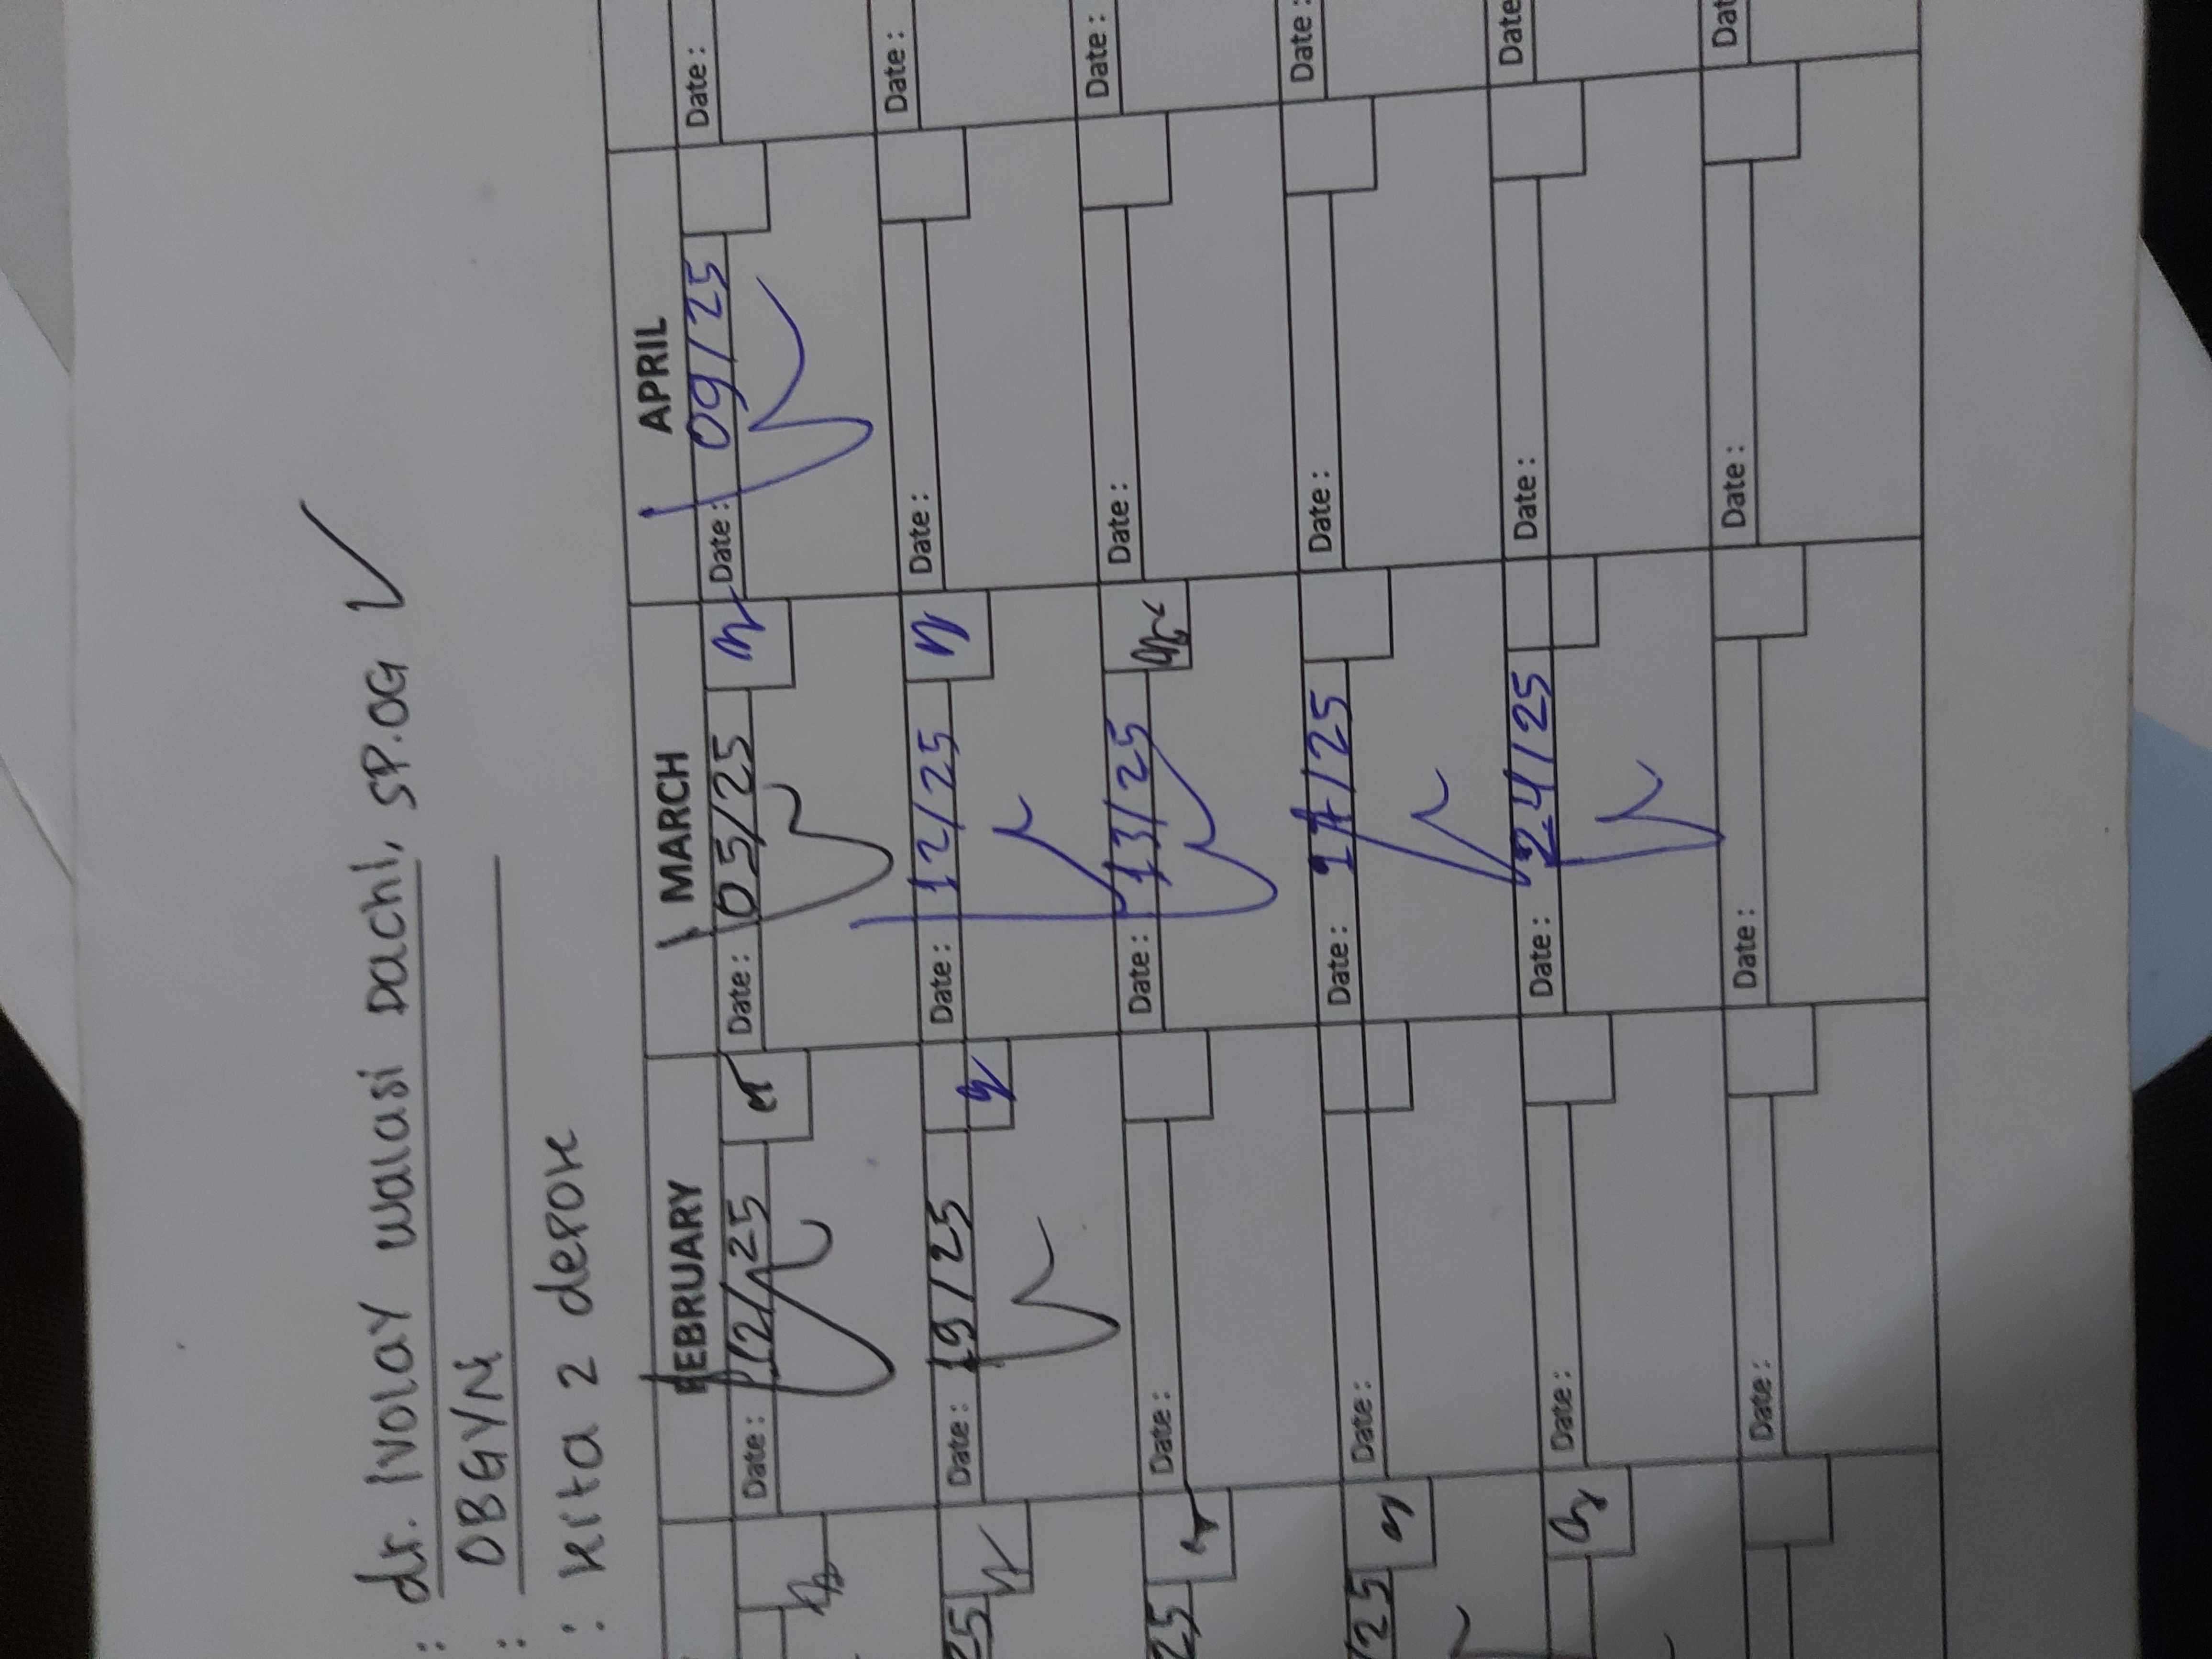 : dr. Ivolay walasi Dachl, SP.OG ✓
: OBGYN
: Krta 2 depok
FEBRUARY MARCH APRIL
Date: 12/25 Date: 05/25 Date: 09/25 Date:
25 Date: 19/25 Date: 12/25 Date: Date:
25 Date: Date: 13/25 Date: Date:
/25 Date: Date: 17/25 Date: Date:
Date: Date: 24/25 Date: Date
Date: Date: Date: Dat